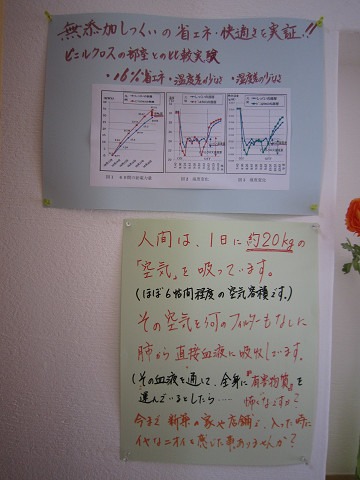 無添加しっくいの省エネ・快適さを実証!!
ビニルクロスの部屋との比較実験
・16%省エネ ・温度差が少ない ・湿度差が少ない
人間は、1日に約20kgの
「空気」を吸っています。
(ほぼ6帖間程度の空気容積です。)
その空気を何のフィルターもなしに
肺から直接血液に吸収しています。
(その血液を通して、全身に『有害物質』を
運んでいるとしたら…… 怖くないですか?
今まで 新築の家や店舗に 入った時に
イヤなニオイと感じた事ありませんか?